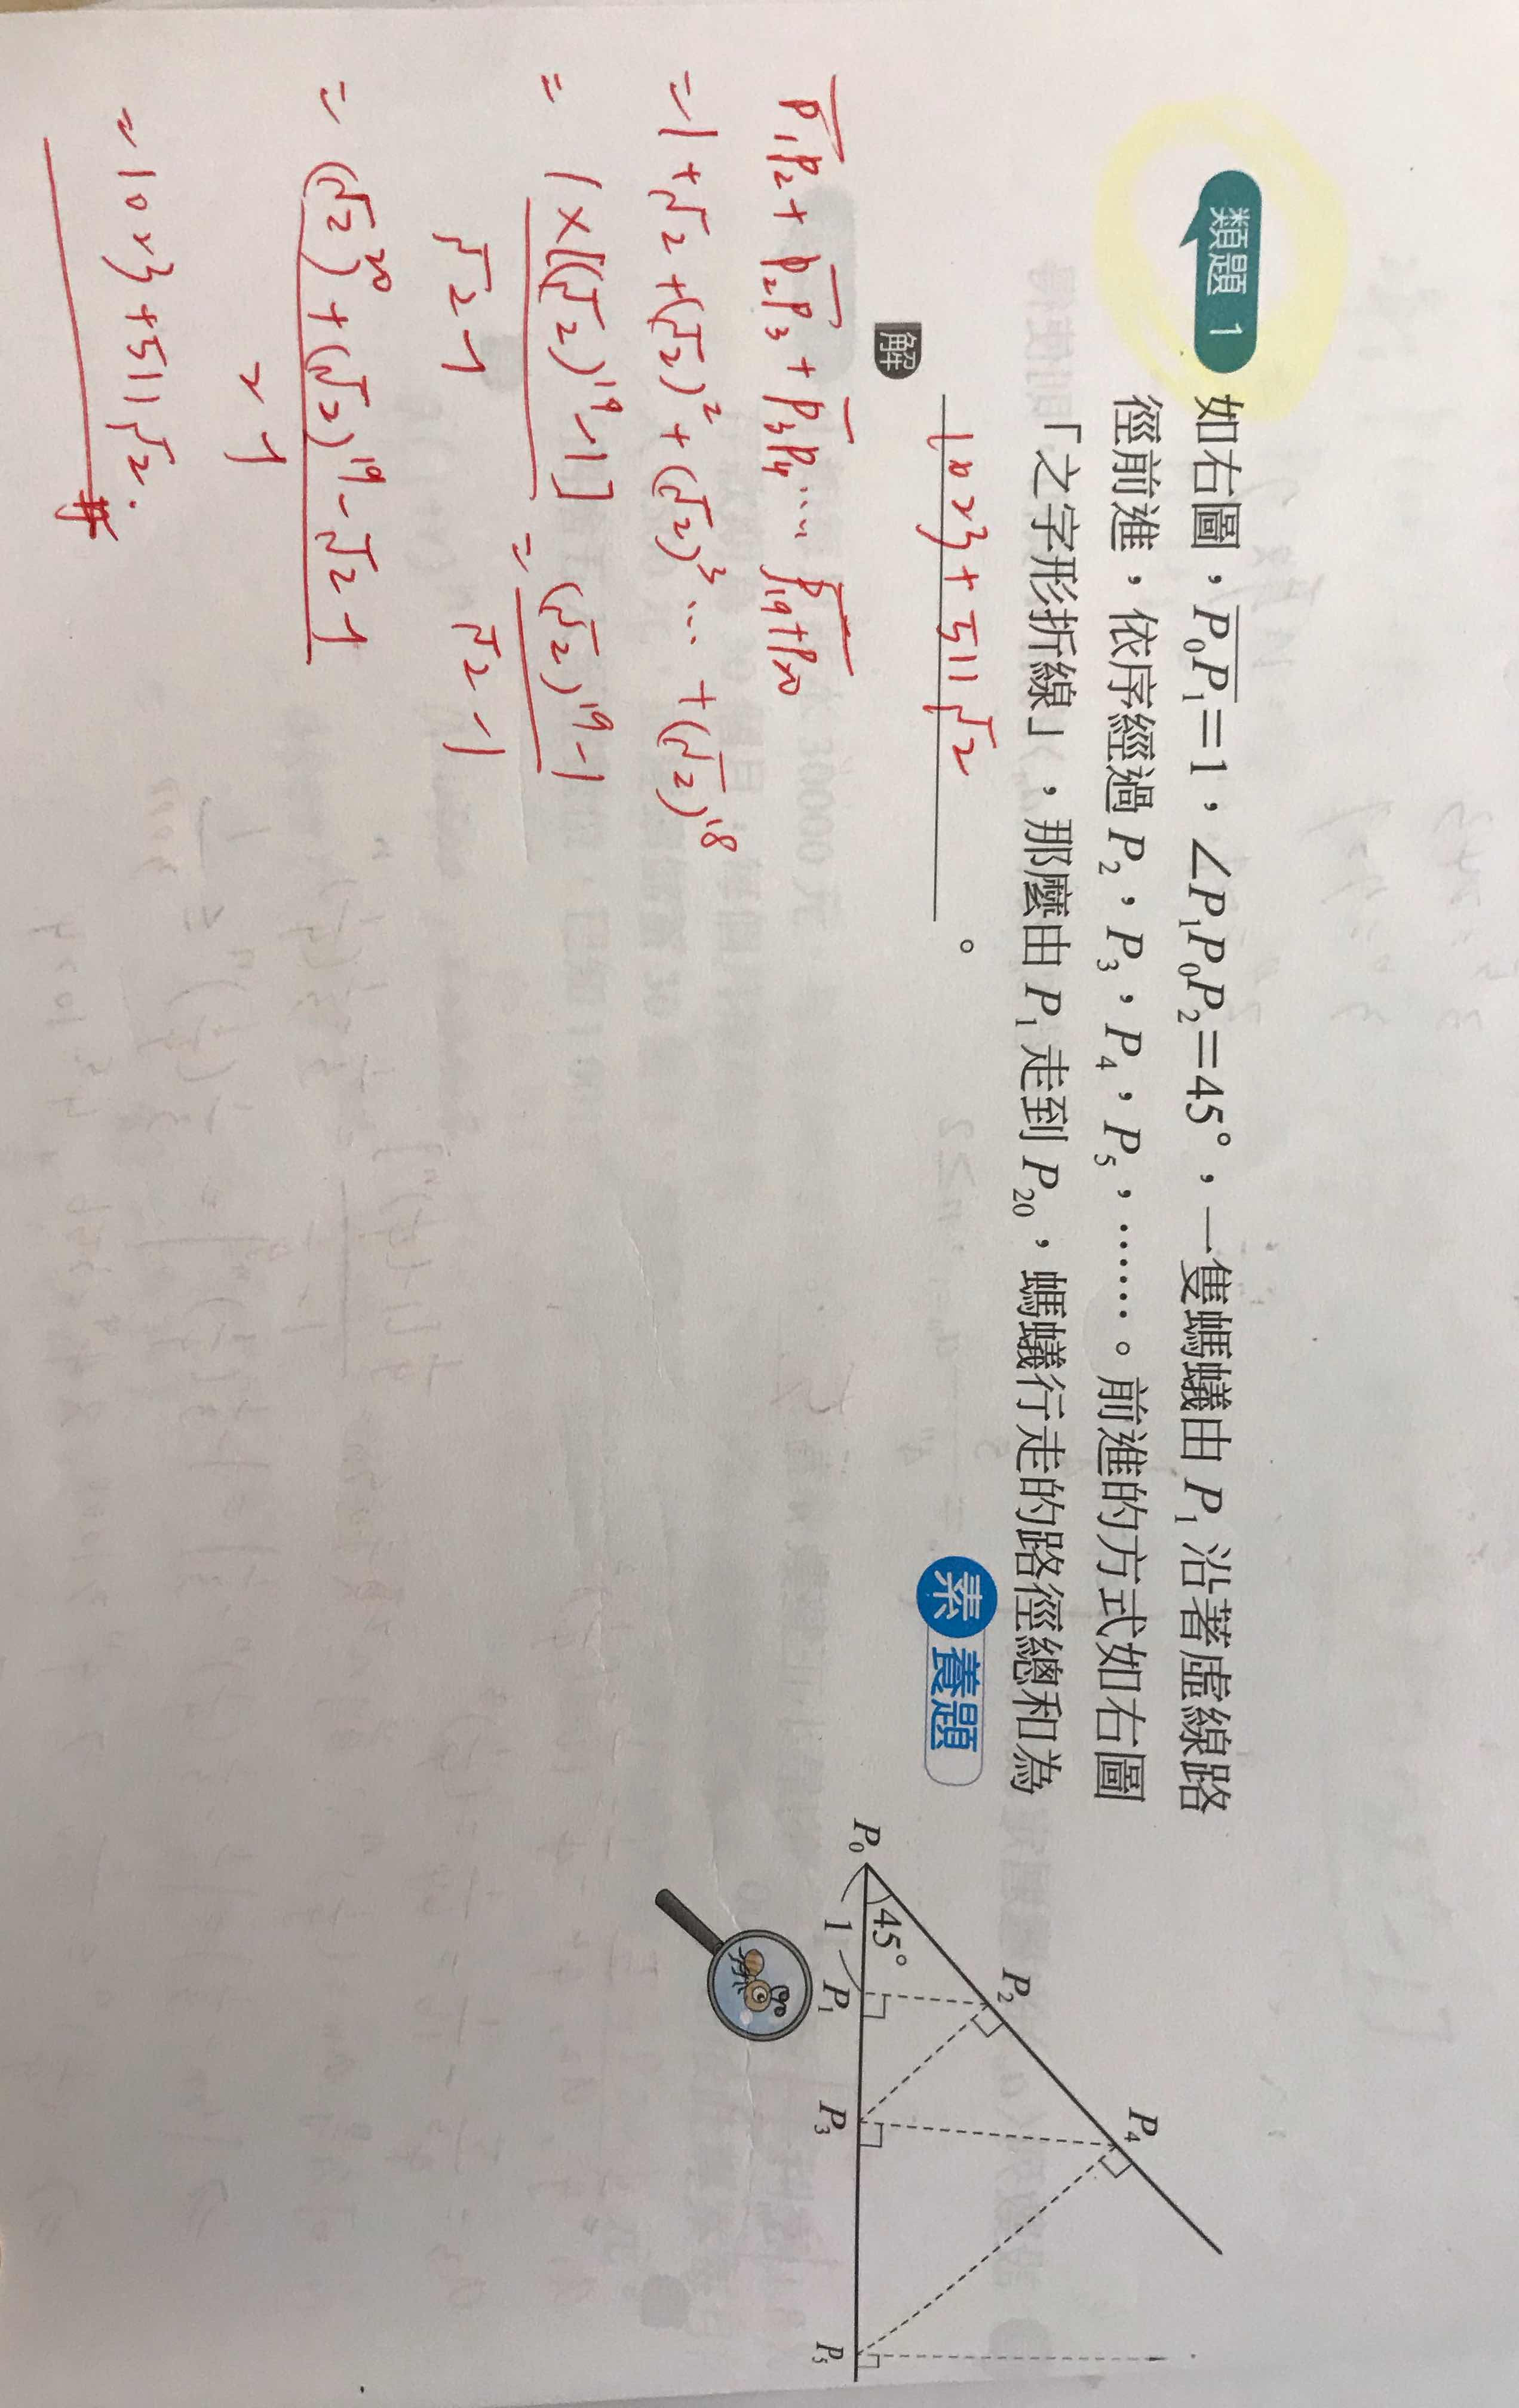 類題 1 如右圖，P₀P₁=1，∠P₁P₀P₂=45°，一隻螞蟻由 P₁ 沿著虛線路
徑前進，依序經過 P₂，P₃，P₄，P₅，……。前進的方式如右圖
「之字形折線」，那麼由 P₁ 走到 P₂₀，螞蟻行走的路徑總和為
1023+511√2 。
素養題
解
P₁P₂+P₂P₃+P₃P₄… P₁₉+P₂₀
=1+√2+(√2)²+(√2)³…+(√2)¹⁸
= 1×[(√2)¹⁹-1] / √2-1 = (√2)¹⁹-1 / √2-1
= (√2)²⁰+(√2)¹⁹-√2-1 / 2-1
=1023+511√2.
P₀
45°
1
P₁
P₂
P₃
P₄
P₅